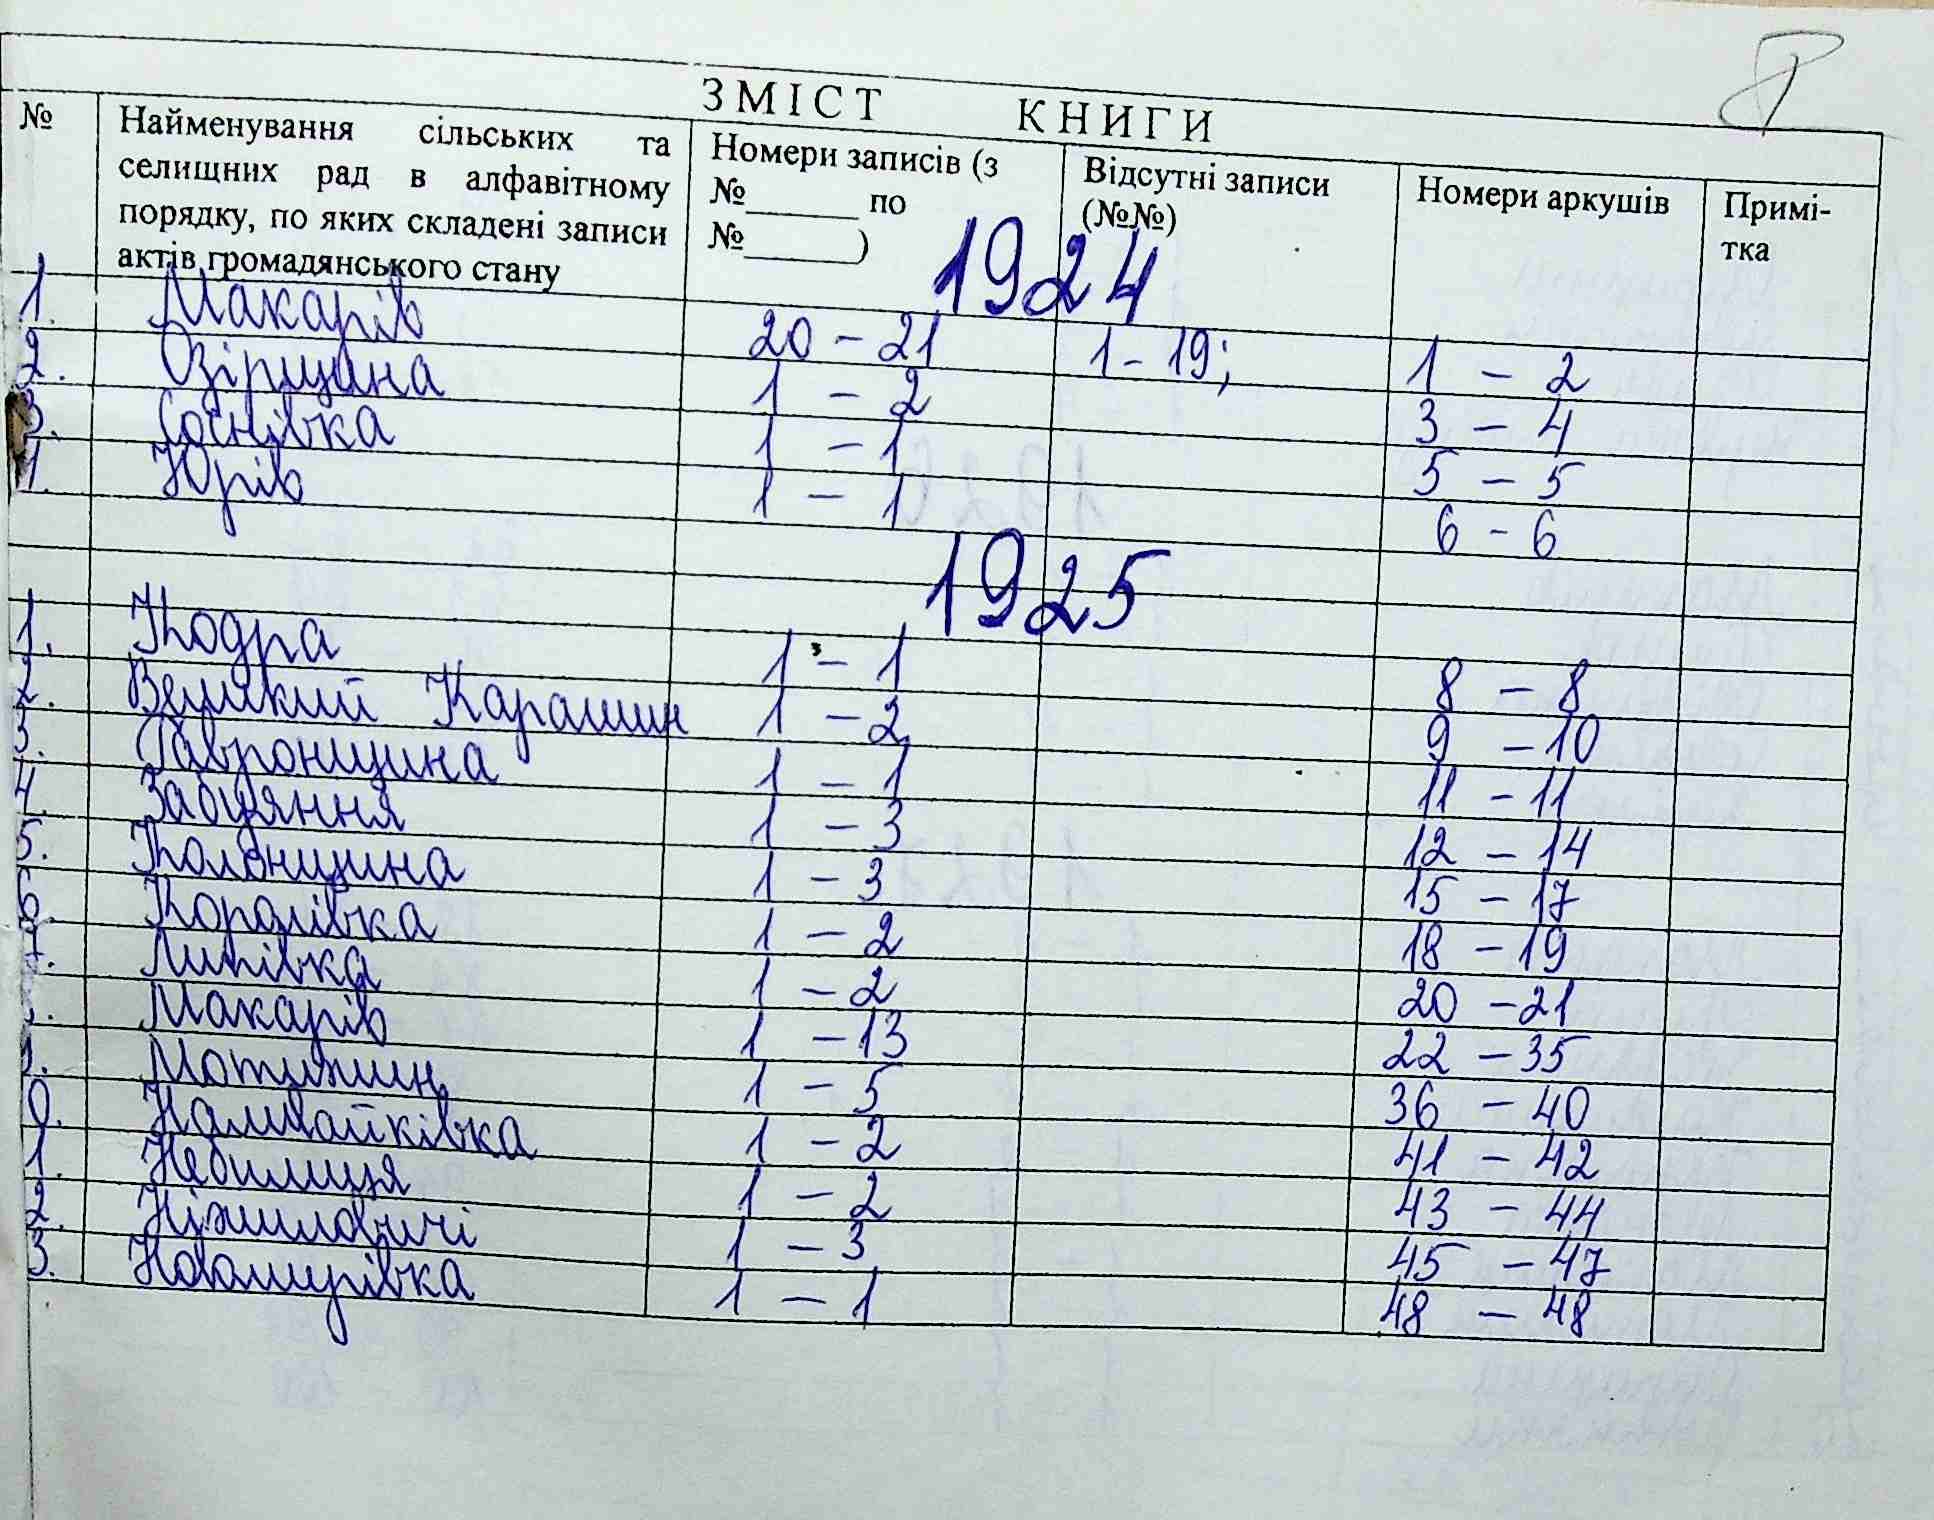 ЗМІСТ КНИГИ
№ Найменування сільських та селищних рад в алфавітному порядку, по яких складені записи актів громадянського стану Номери записів (з №______ по №______) Відсутні записи (№№) Номери аркушів Примі-тка
1924
1. Макарів 20 – 21 1 – 19; 1 – 2
2. Озірщана 1 – 2 3 – 4
3. Соснівка 1 – 1 5 – 5
4. Юрів 1 – 1 6 – 6
1925
1. Кодра 1 – 1 8 – 8
2. Великий Карашин 1 – 2 9 – 10
3. Гавронщина 1 – 1 11 – 11
4. Забуяння 1 – 3 12 – 14
5. Колонщина 1 – 3 15 – 17
6. Королівка 1 – 2 18 – 19
7. Липівка 1 – 2 20 – 21
Макарів 1 – 13 22 – 35
Мотижин 1 – 5 36 – 40
0. Наливайківка 1 – 2 41 – 42
1. Небилиця 1 – 2 43 – 44
2. Ніжиловичі 1 – 3 45 – 47
3. Новомирівка 1 – 1 48 – 48